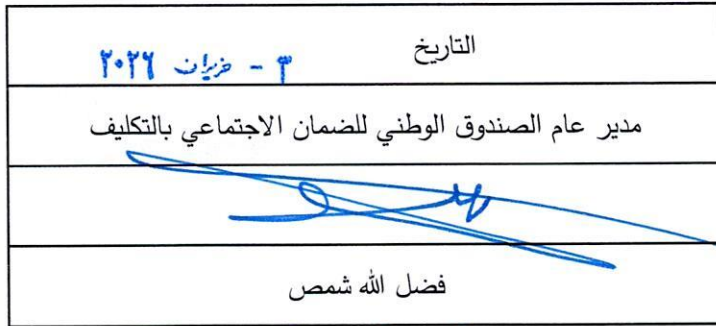 التاريخ ٣ - حزيران ٢٠٢٦
مدير عام الصندوق الوطني للضمان الاجتماعي بالتكليف
فضل الله شمص